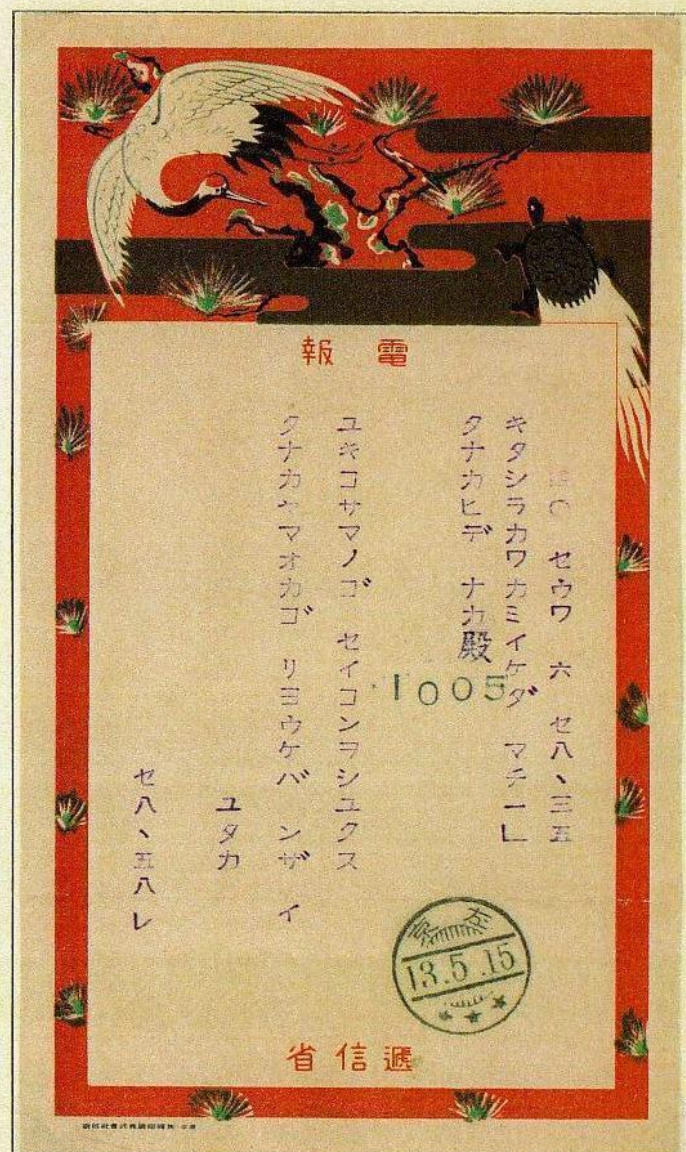 電報
セウワ 六 セ八、三五
キタシラカワカミイケダ マチ一L
タナカヒデ ナカ殿
1005
ユキコサマノゴ セイコンヲシユクス
タナカヤマオカゴ リヨウケバ ンザ イ
ユタカ
セ八、五八レ
13.5.15
遞信省